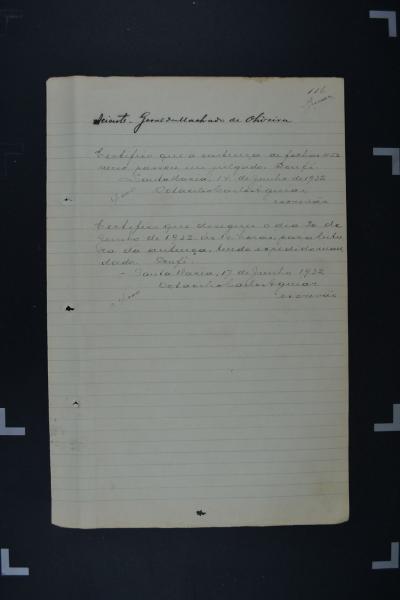 116
Sciente - Geraldo Machado de Oliveira
Certifico que a sentença de folhas
passou em julgado. Doufé.
Santa Maria, 17 de Junho de 1932
Octacilio Carlos Aguiar
escrivão
Certifico que designei o dia 20 de
Junho de 1932 horas, para leitu-
ra da sentença, tendo expedido man-
dado. Doufé.
- Santa Maria, 17 de Junho 1932
Octacilio Carlos Aguiar
escrivão